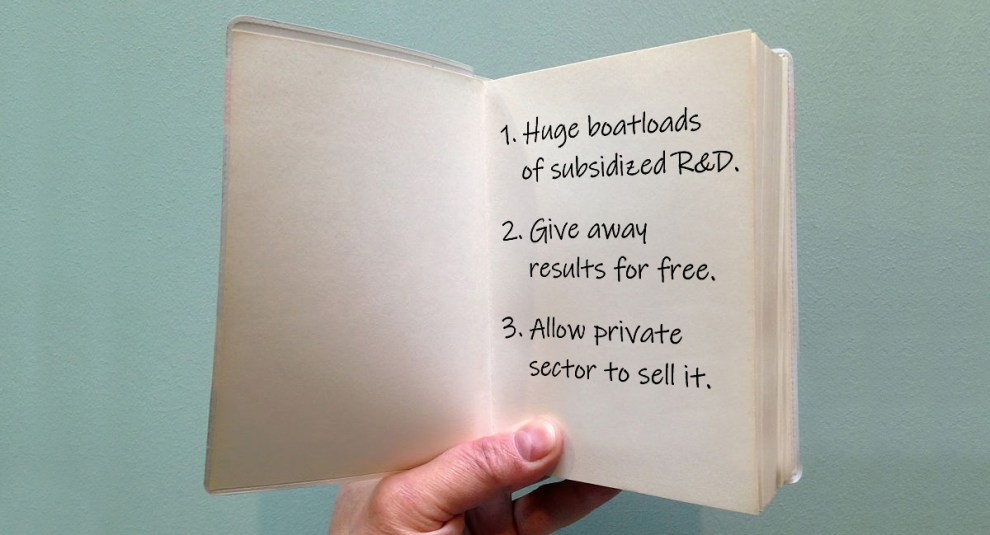 1. Huge boatloads
of subsidized R&D.
2. Give away
results for free.
3. Allow private
sector to sell it.